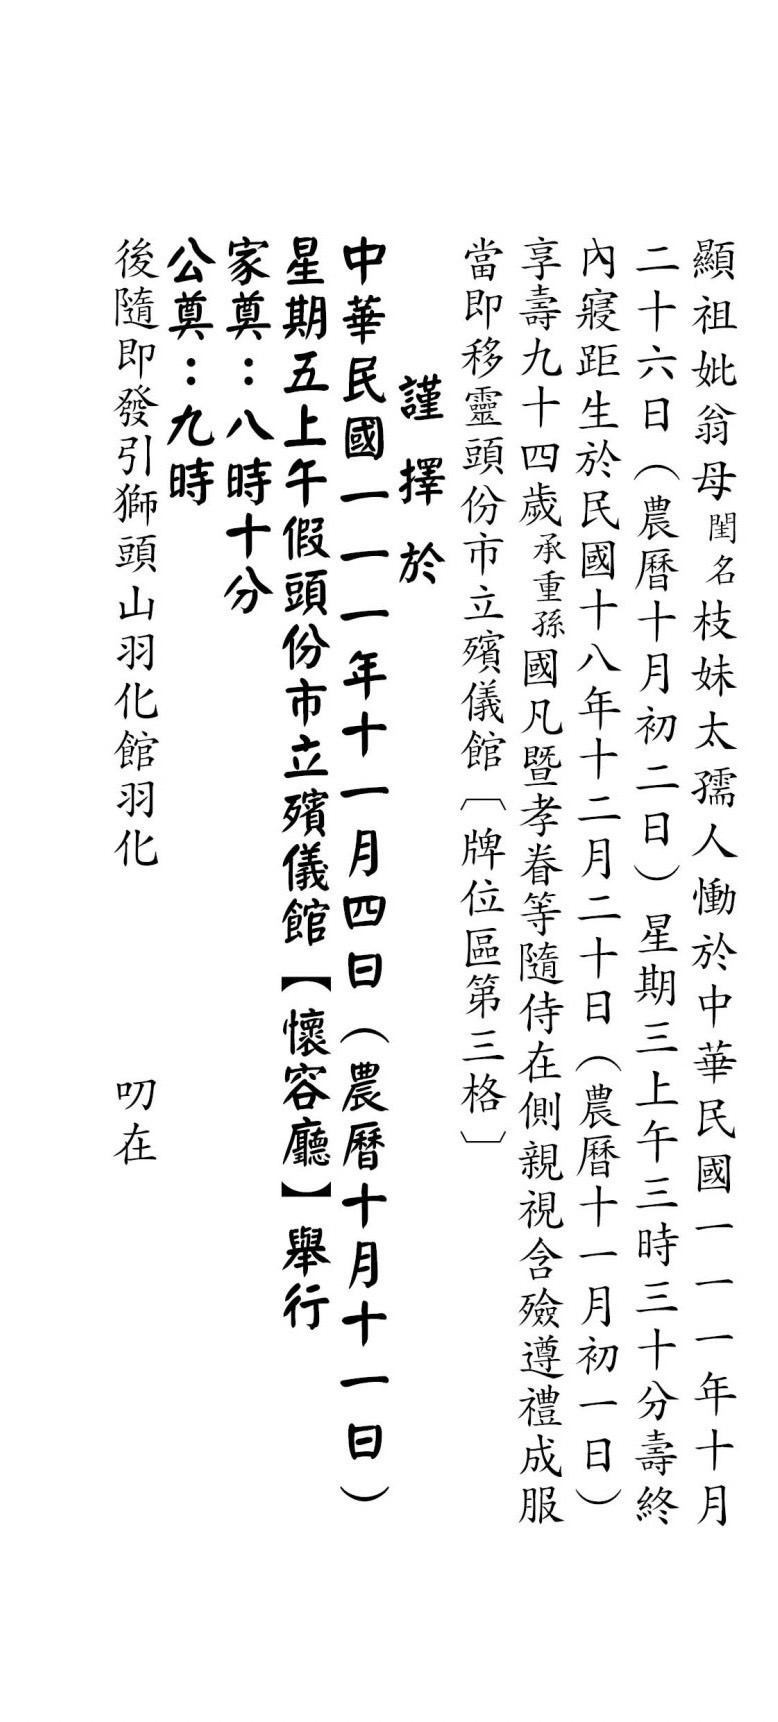 顯祖妣翁母閨名枝妹太孺人慟於中華民國一一一年十月
二十六日（農曆十月初二日）星期三上午三時三十分壽終
內寢距生於民國十八年十二月二十日（農曆十一月初一日）
享壽九十四歲承重孫國凡暨孝眷等隨侍在側親視含殮遵禮成服
當即移靈頭份市立殯儀館〔牌位區第三格〕
謹擇於
中華民國一一一年十一月四日（農曆十月十一日）
星期五上午假頭份市立殯儀館【懷容廳】舉行
家奠：八時十分
公奠：九時
後隨即發引獅頭山羽化館羽化 叨在